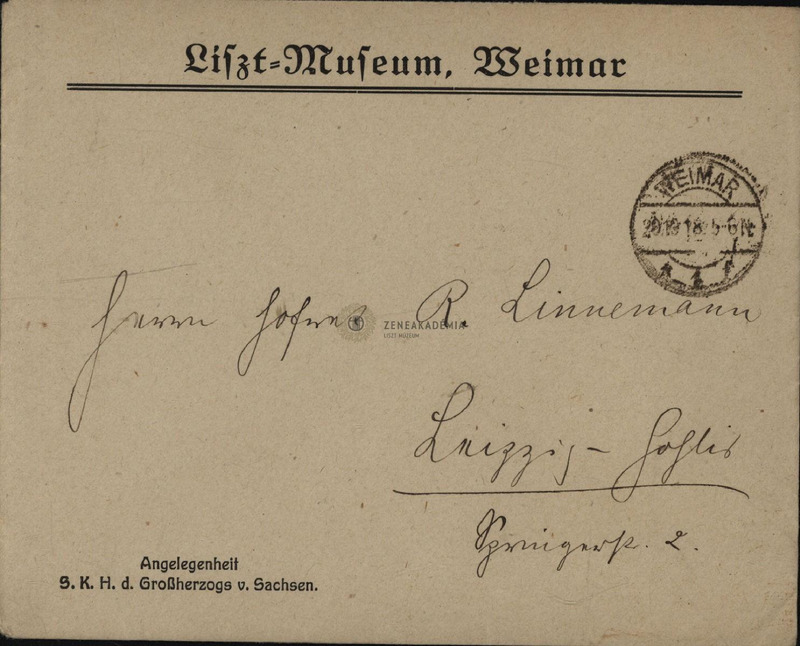 Liszt-Museum, Weimar
WEIMAR
5-6N
Herrn Hofrat R. Linnemann
ZENEAKADÉMIA
LISZT MÚZEUM
Leipzig-Gohlis
Springerst. 2.
Angelegenheit
S. K. H. d. Großherzogs v. Sachsen.